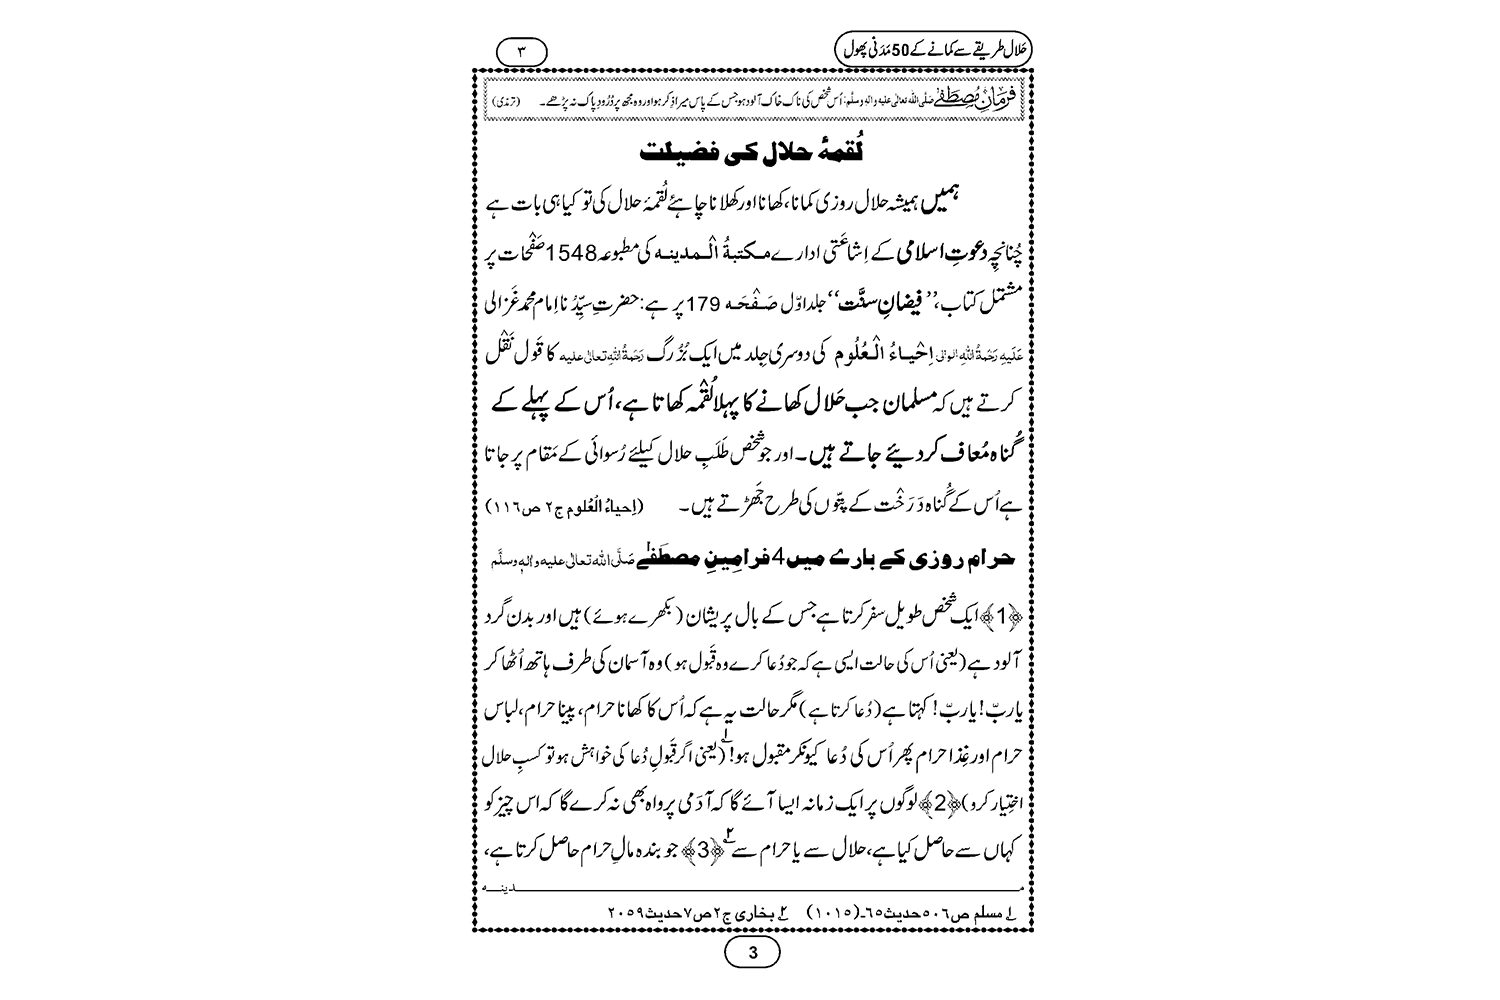 حَلال طریقے سے کمانے کے 50 مَدَنی پھول
۳
فرمانِ مُصطَفٰے صلَّی اللہ تعالٰی علیہ والہٖ وسلَّم: اُس شخص کی ناک خاک آلود ہو جس کے پاس میرا ذِکر ہو اور وہ مجھ پر دُرُودِ پاک نہ پڑھے۔ (ترمذی)
لُقمۂ حلال کی فضیلت
ہمیں ہمیشہ حلال روزی کمانا، کھانا اور کھلانا چاہئے لُقمۂ حلال کی تو کیا ہی بات ہے
چُنانچِہ دعوتِ اسلامی کے اِشاعَتی ادارے مکتبۃُ الْمدینہ کی مطبوعہ 1548 صَفْحات پر
مشتمل کتاب، ’’فیضانِ سنَّت‘‘ جلد اوّل صَفْحَہ 179 پر ہے: حضرتِ سیِّدُنا اِمام محمد غَزالی
عَلَیْہِ رَحْمَۃُ اللہِ الْوَالِی اِحْیاءُ الْعُلُوم کی دوسری جِلد میں ایک بُزُرگ رَحْمَۃُ اللہِ تعالٰی علیہ کا قَول نَقْل
کرتے ہیں کہ مسلمان جب حَلال کھانے کا پہلا لُقْمہ کھاتا ہے، اُس کے پہلے کے
گُناہ مُعاف کر دیئے جاتے ہیں۔ اور جو شخص طَلَبِ حلال کیلئے رُسوائی کے مَقام پر جاتا
ہے اُس کے گُناہ دَرَخْت کے پتّوں کی طرح جَھڑتے ہیں۔ (اِحیاءُ الْعُلوم ج۲ ص۱۱۶)
حرام روزی کے بارے میں 4 فرامِینِ مصطَفٰے صَلَّی اللہ تعالٰی علیہ والہٖ وسلَّم
﴿1﴾ ایک شخص طویل سفر کرتا ہے جس کے بال پریشان (بکھرے ہوئے) ہیں اور بدن گرد
آلود ہے (یعنی اُس کی حالت ایسی ہے کہ جو دُعا کرے وہ قَبول ہو) وہ آسمان کی طرف ہاتھ اُٹھا کر
یا ربّ! یا ربّ! کہتا ہے (دُعا کرتا ہے) مگر حالت یہ ہے کہ اُس کا کھانا حرام، پینا حرام، لباس
حرام اور غِذا حرام پھر اُس کی دُعا کیونکر مقبول ہو!۱؎ (یعنی اگر قَبولِ دُعا کی خواہش ہو تو کسبِ حلال
اختِیار کرو) ﴿2﴾ لوگوں پر ایک زمانہ ایسا آئے گا کہ آدَمی پرواہ بھی نہ کرے گا کہ اس چیز کو
کہاں سے حاصل کیا ہے، حلال سے یا حرام سے ۲؎ ﴿3﴾ جو بندہ مالِ حرام حاصل کرتا ہے،
مدینہ
۱؎ مسلم ص۵۰۶ حدیث۶۵۔(۱۰۱۵) ۲؎ بخاری ج۲ ص۷ حدیث۲۰۵۹
3